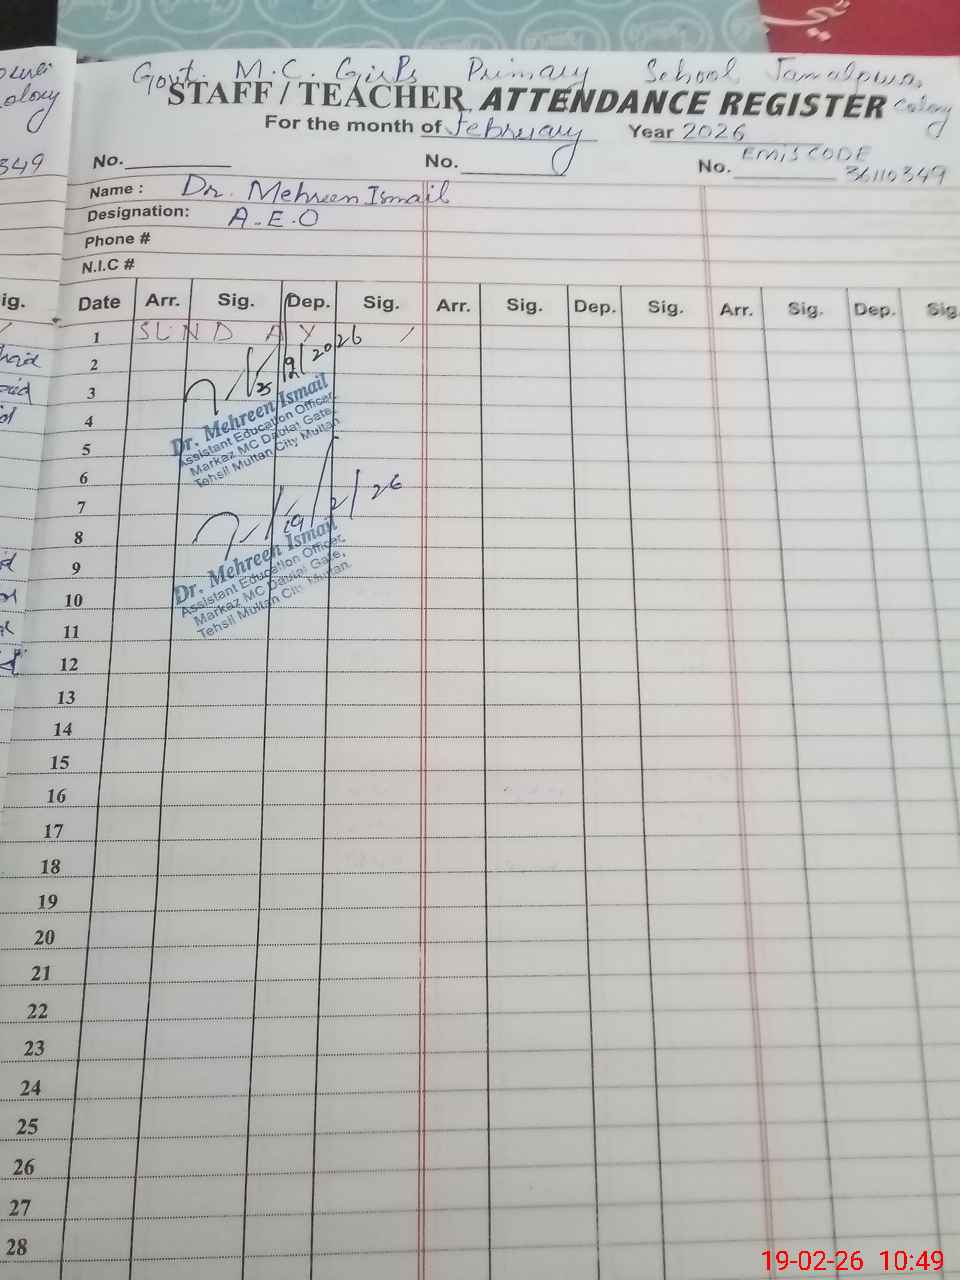 Govt. M.C. Girls Primary School Jamalpura
STAFF / TEACHER ATTENDANCE REGISTER Colony
For the month of February Year 2026
No. No. No. EMIS CODE 36110349
349
Name : Dr. Mehreen Ismail
Designation: A.E.O
Phone #
N.I.C #
ig. Date Arr. Sig. Dep. Sig. Arr. Sig. Dep. Sig. Arr. Sig. Dep. Sig.
1 SUNDAY
2
3
4
5
6
7
8
9
10
11
12
13
14
15
16
17
18
19
20
21
22
23
24
25
26
27
28
Dr. Mehreen Ismail
Assistant Education Officer,
Markaz MC Daulat Gate,
Tehsil Multan City Multan
19/2/26
Dr. Mehreen Ismail
Assistant Education Officer,
Markaz MC Daulat Gate,
Tehsil Multan City Multan.
19-02-26 10:49